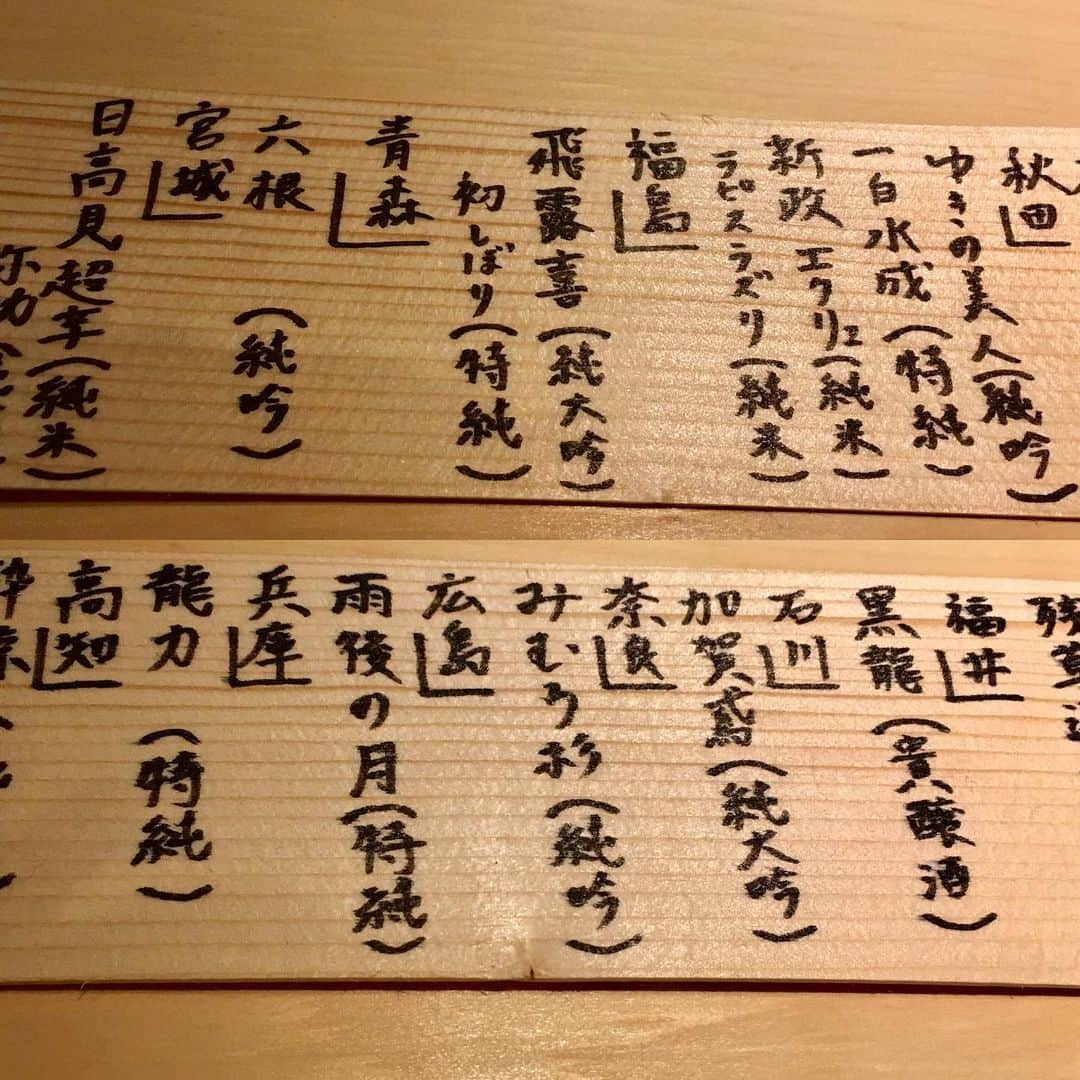 秋田
ゆきの美人(純吟)
一白水成(特純)
新政 エクリュ(純米)
ラピスラズリ(純米)
福島
飛露喜(純大吟)
初しぼり(特純)
青森
六根 (純吟)
宮城
日高見 超辛(純米)
弥助
福井
黒龍(貴醸酒)
石川
加賀鳶(純大吟)
奈良
みむろ杉(純吟)
広島
雨後の月(特純)
兵庫
龍力 (特純)
高知